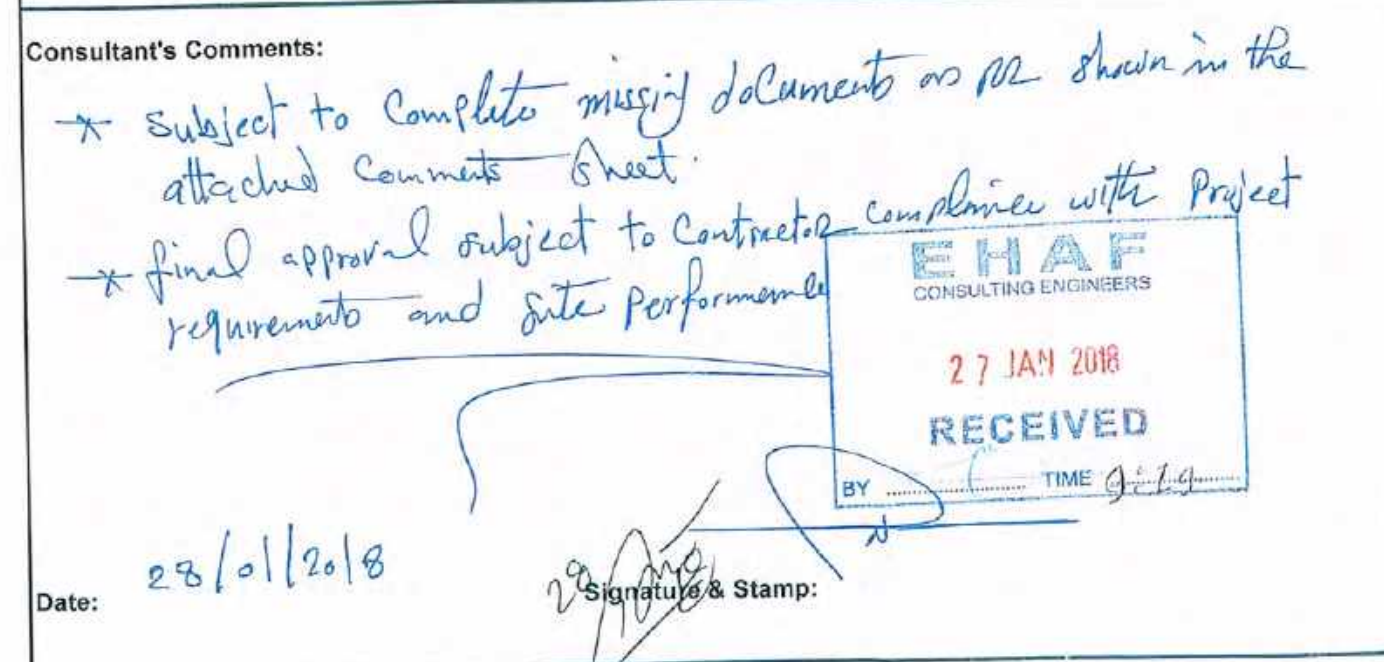 Consultant's Comments:
* Subject to Complete missing documents as shown in the
attached Comments Sheet.
* final approval subject to Contractor compliance with Project
requirements and Site Performance
EHAF
CONSULTING ENGINEERS
27 JAN 2018
RECEIVED
BY TIME
Date: 28/01/2018
Signature & Stamp: